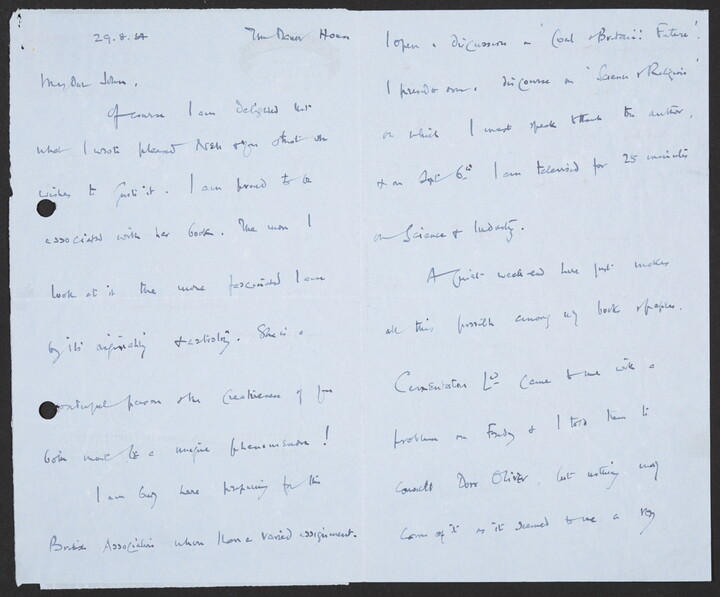 29.8.64 The Manor House
My Dear John,
Of course I am delighted that
what I wrote pleased &
wishes to quote it. I am proud to be
associated with her book. The more I
look at it the more fascinated I am
by its originality & artistry. She is a
wonderful person & the creativeness of you
both must be a unique phenomenon!
I am busy here preparing for the
British Association where I have a varied assignment.
I open a discussion on 'Coal & Britain's Future'.
I preside over a discourse on 'Science & Religion'
on which I must speak & thank the author,
& on Sept 6th I am televised for 25 minutes
on Science & Industry.
A quiet week-end here just makes
all this possible among my books & papers.
Cementation Ltd came to me with a
problem on Friday & I told them to
consult Dorr Oliver, but nothing may
come of it as it seemed to me a very